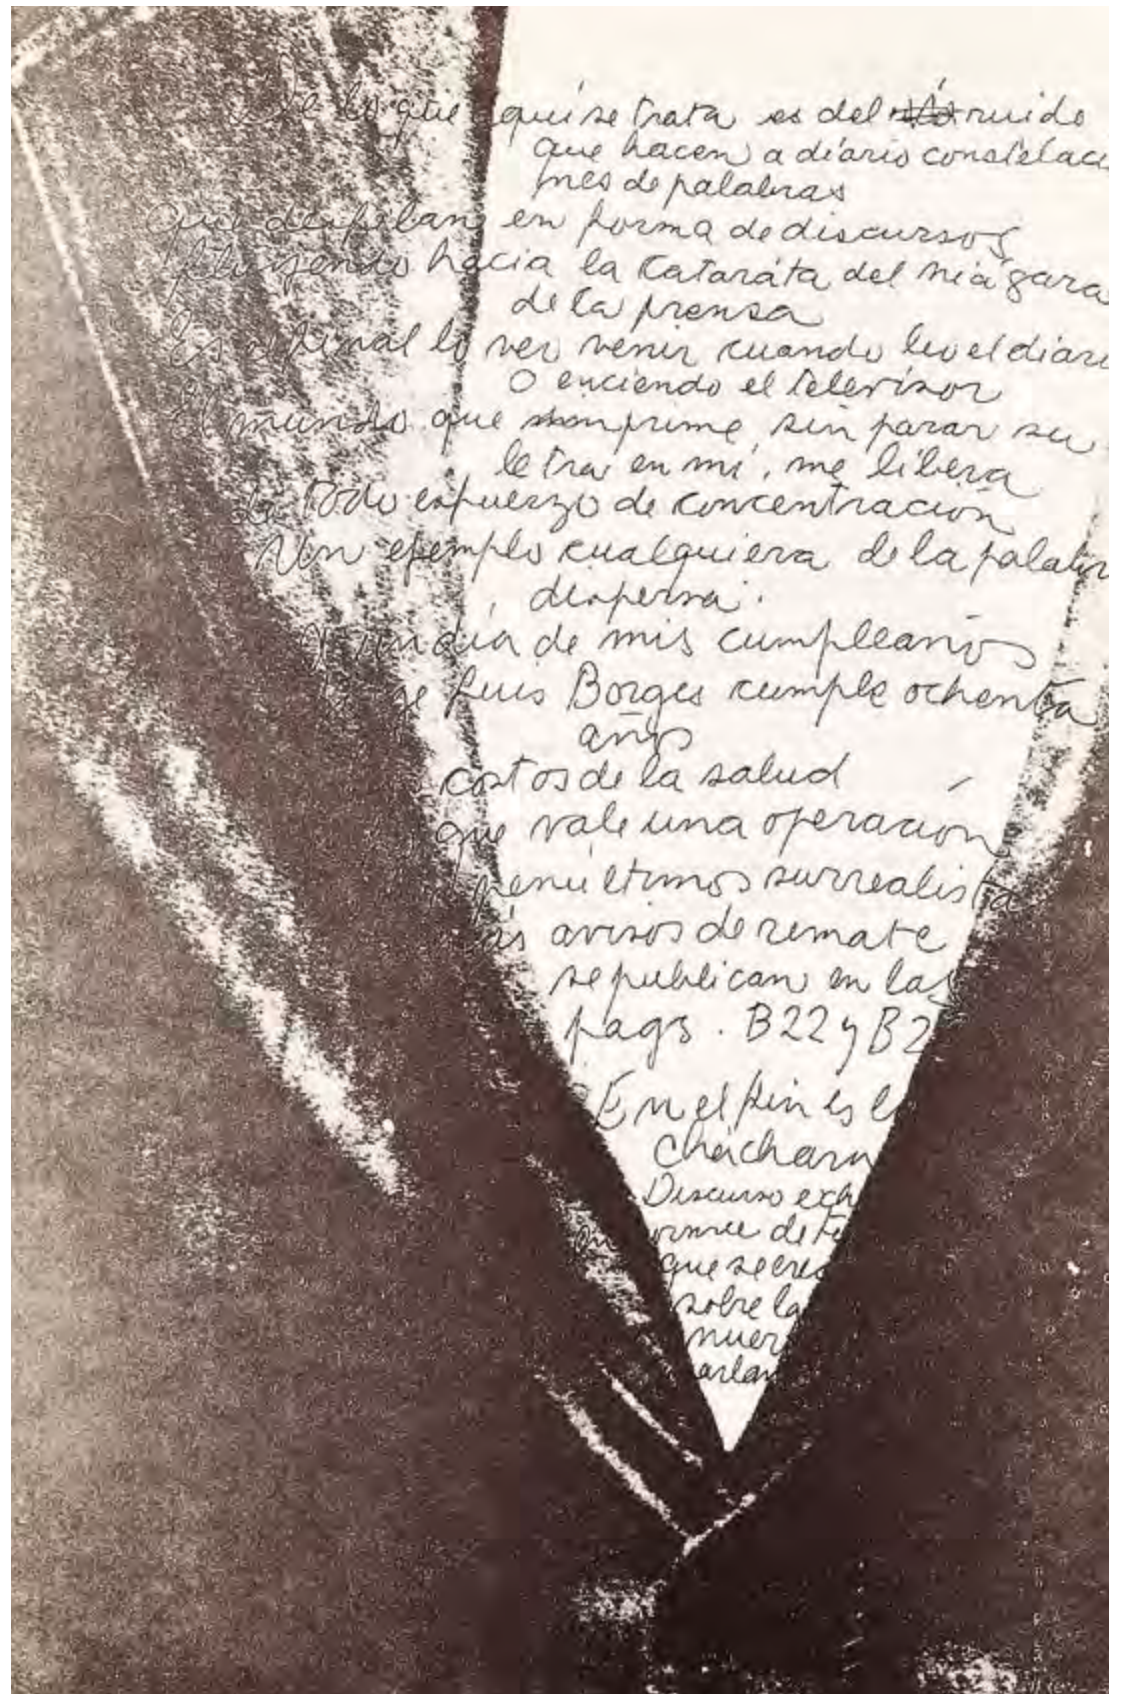 De lo que aquí se trata es del ruido
que hacen a diario constelaci
ones de palabras
que desfilan en forma de discursos
fluyendo hacia la catarata del niágara
de la prensa
Es al final lo ver venir cuando leo el diari
O enciendo el televisor
El mundo que imprime sin parar su
letra en mí, me libera
de todo esfuerzo de concentración
Un ejemplo cualquiera de la palabr
dispersa.
día de mis cumpleaños
Jorge Luis Borges cumple ochenta
años
costos de la salud
que vale una operación
penúltimos surrealista
más avisos de remate
se publican en las
pags. B22 y B2
En el fin es l
cháchara
Discurso
que se cre
sobre la
muer
arlan